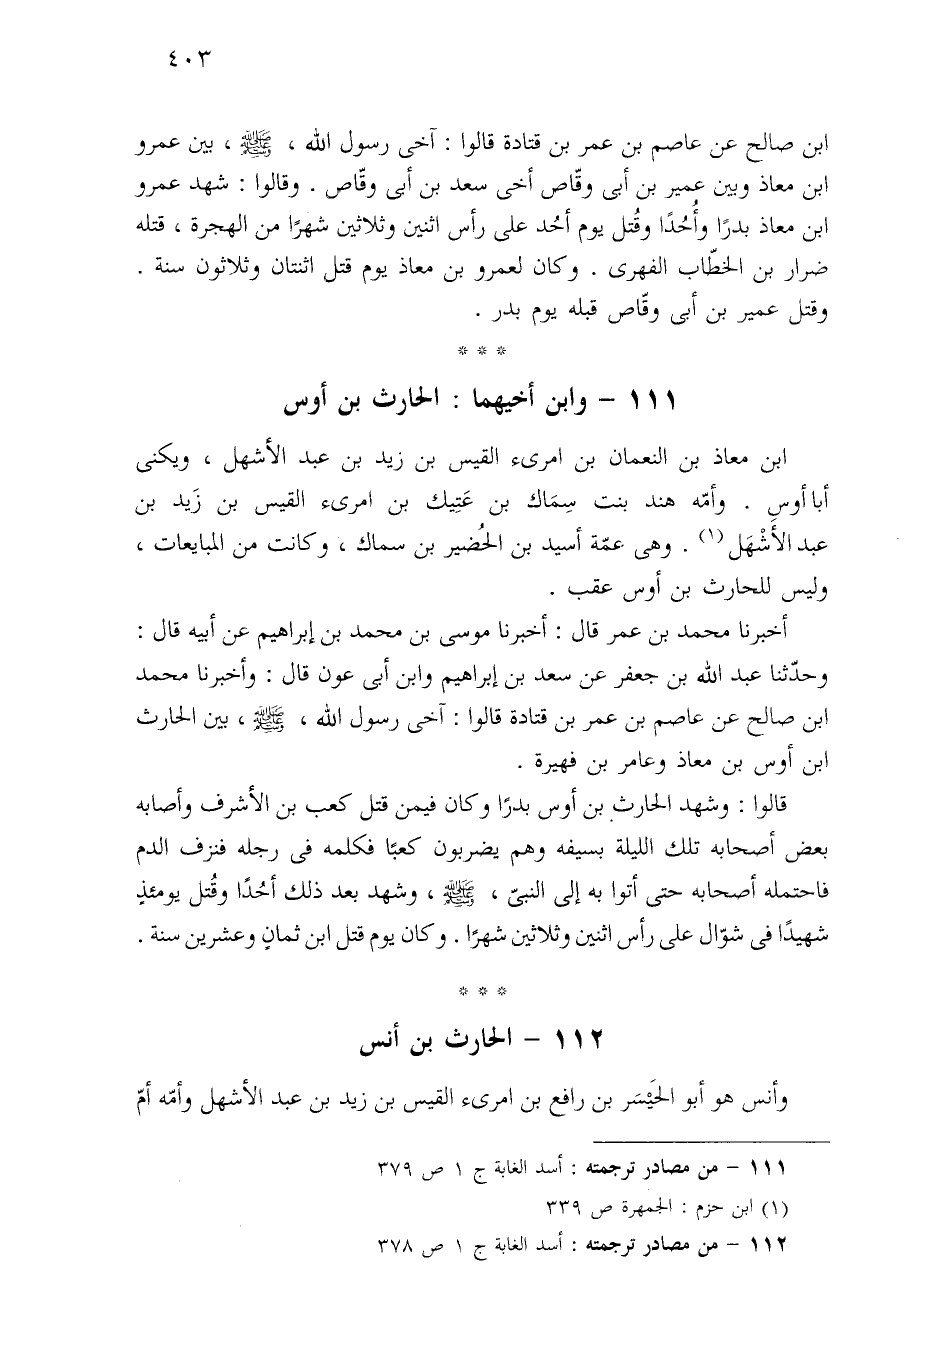 ٤٠٣
ابن صالح عن عاصم بن عمر بن قتادة قالوا : آخى رسول الله ، ﷺ ، بين عمرو
ابن معاذ وبين عمير بن أبى وقّاص أخى سعد بن أبى وقّاص . وقالوا : شهد عمرو
ابن معاذ بدرًا وأُحُدًا وقُتل يوم أحُد على رأس اثنين وثلاثين شهرًا من الهجرة ، قتله
ضرار بن الخطّاب الفهرى . وكان لعمرو بن معاذ يوم قتل اثنتان وثلاثون سنة .
وقتل عمير بن أبى وقّاص قبله يوم بدر .
* * *
١١١ – وابن أخيهما : الحارث بن أوس
ابن معاذ بن النعمان بن امرىء القيس بن زيد بن عبد الأشهل ، ويكنى
أبا أوس . وأمّه هند بنت سِمَاك بن عَتِيك بن امرىء القيس بن زَيد بن
عبد الأَشْهَل (١) . وهى عمّة أسيد بن الحُضير بن سماك ، وكانت من المبايعات ،
وليس للحارث بن أوس عقب .
أخبرنا محمد بن عمر قال : أخبرنا موسى بن محمد بن إبراهيم عن أبيه قال :
وحدّثنا عبد الله بن جعفر عن سعد بن إبراهيم وابن أبى عون قال : وأخبرنا محمد
ابن صالح عن عاصم بن عمر بن قتادة قالوا : آخى رسول الله ، ﷺ ، بين الحارث
ابن أوس بن معاذ وعامر بن فهيرة .
قالوا : وشهد الحارث بن أوس بدرًا وكان فيمن قتل كعب بن الأشرف وأصابه
بعض أصحابه تلك الليلة بسيفه وهم يضربون كعبًا فكلمه فى رجله فنزف الدم
فاحتمله أصحابه حتى أتوا به إلى النبىّ ، ﷺ ، وشهد بعد ذلك أحُدًا وقُتل يومئذٍ
شهيدًا فى شوّال على رأس اثنين وثلاثين شهرًا . وكان يوم قتل ابن ثمانٍ وعشرين سنة .
* * *
١١٢ – الحارث بن أنس
وأنس هو أبو الحَيْسَر بن رافع بن امرىء القيس بن زيد بن عبد الأشهل وأمّه أمّ
١١١ – من مصادر ترجمته : أسد الغابة ج ١ ص ٣٧٩
(١) ابن حزم : الجمهرة ص ٣٣٩
١١٢ – من مصادر ترجمته : أسد الغابة ج ١ ص ٣٧٨